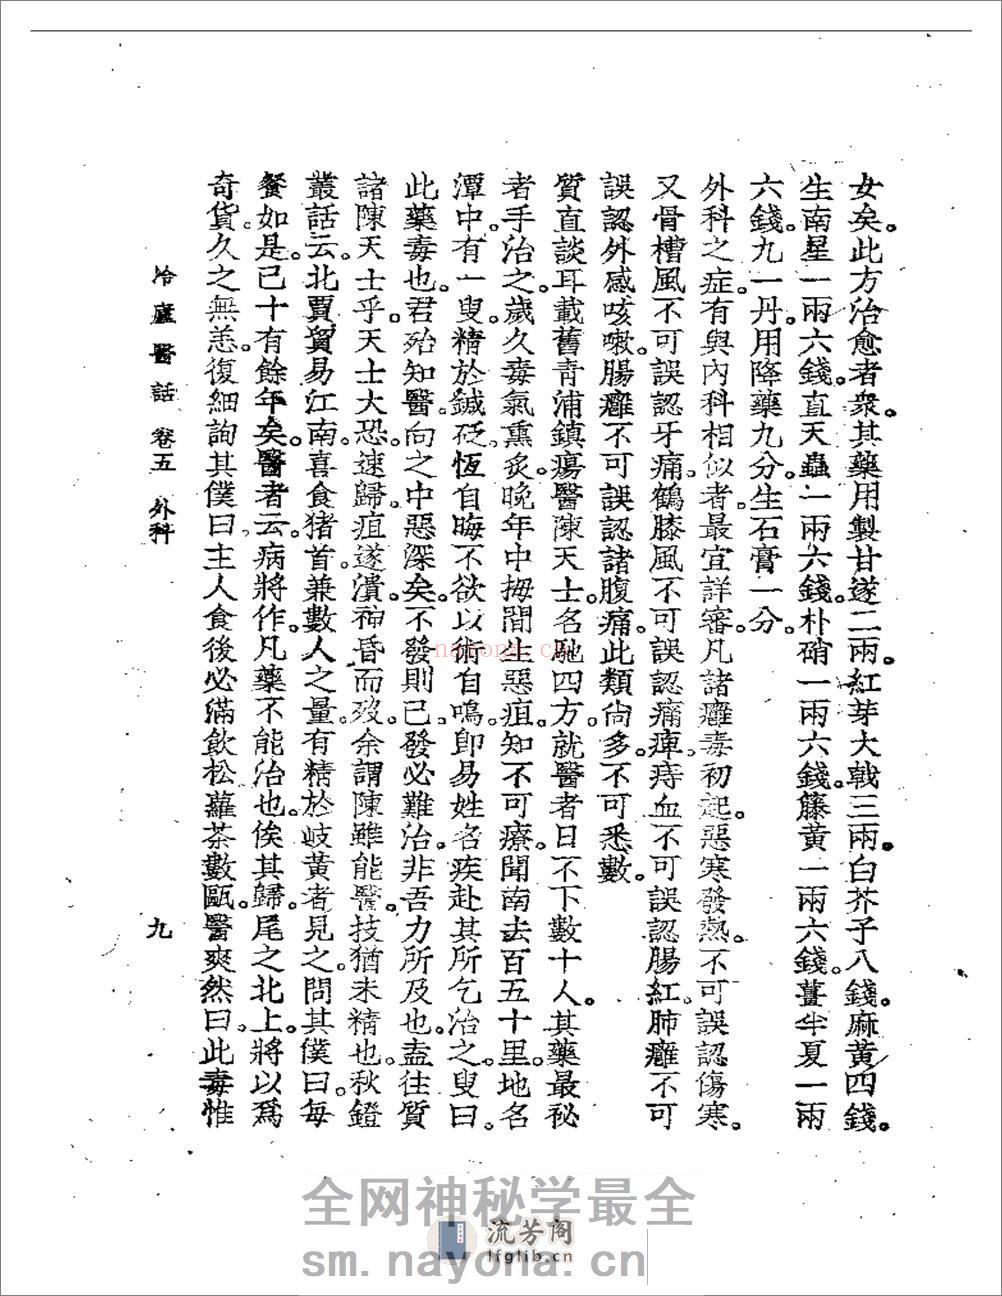 女矣。此方治愈者衆。其藥用製甘遂二兩。紅芽大戟三兩。白芥子八錢。麻黃四錢。
生南星一兩六錢。直天蟲一兩六錢。朴硝一兩六錢。籐黃一兩六錢。薑半夏一兩
六錢。九一丹。用降藥九分。生石膏一分。
外科之症。有與內科相似者。最宜詳審。凡諸癰毒初起。惡寒發熱。不可誤認傷寒。
又骨槽風不可誤認牙痛。鶴膝風不可誤認痛痺。痔血不可誤認腸紅。肺癰不可
誤認外感咳嗽。腸癰不可誤認諸腹痛。此類尙多。不可悉數。
質直談耳載舊青浦鎮瘍醫陳天士。名馳四方。就醫者日不下數十人。其藥最秘
者手治之。歲久毒氣熏炙。晚年中拇間生惡疽。知不可療。聞南去百五十里。地名
潭中。有一叟。精於鍼砭。恆自晦不欲以術自鳴。卽易姓名疾赴其所乞治之。叟曰。
此藥毒也。君殆知醫。向之中惡深矣。不發則已。發必難治。非吾力所及也。盍往質
諸陳天士乎。天士大恐。速歸。疽遂潰。神昏而歿。余謂陳雖能醫。技猶未精也。秋鐙
叢話云。北賈貿易江南。喜食猪首。兼數人之量。有精於岐黃者見之。問其僕曰。每
餐如是。已十有餘年矣。醫者云。病將作。凡藥不能治也。俟其歸。尾之北上。將以爲
奇貨。久之無恙。復細詢其僕曰。主人食後必滿飲松蘿茶數甌。醫爽然曰。此毒惟
冷廬醫話 卷五 外科
九
nayona.cn
全网神秘学最全
流芳阁
lfglib.cn
sm.nayona.cn